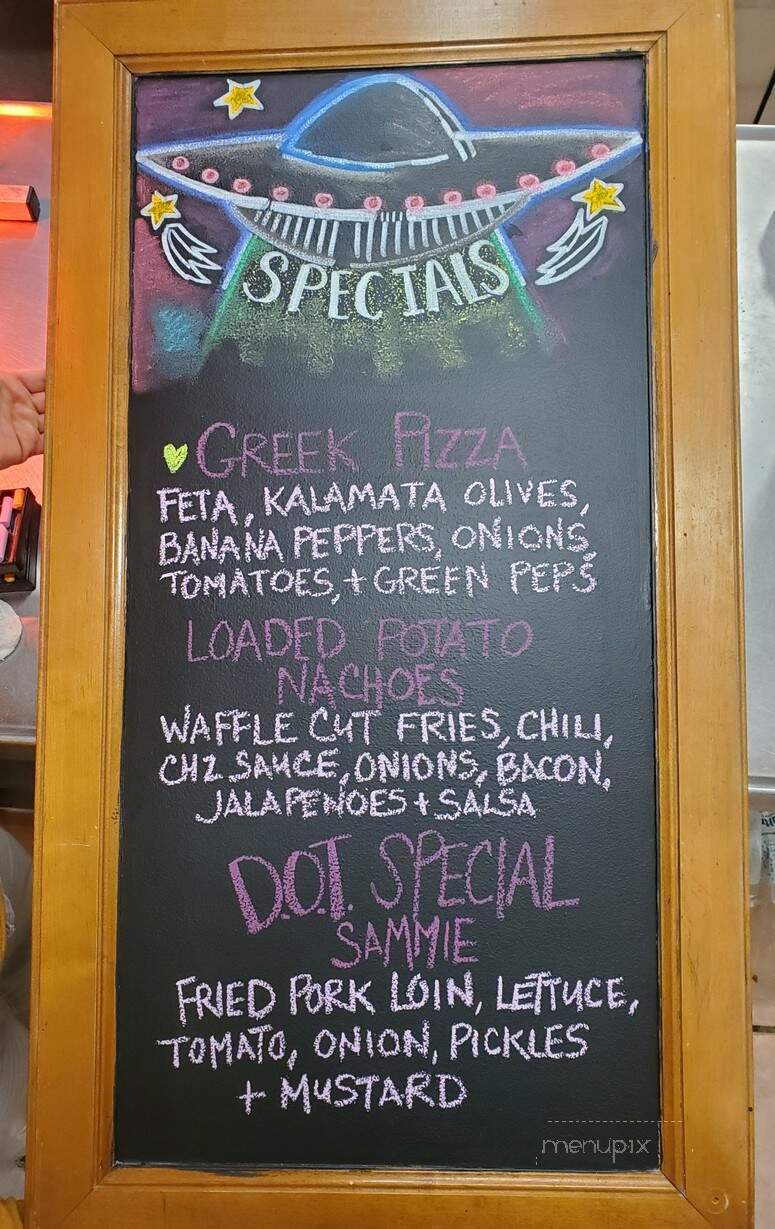 SPECIALS
GREEK PIZZA
FETA, KALAMATA OLIVES,
BANANA PEPPERS, ONIONS,
TOMATOES, + GREEN PEPS
LOADED POTATO
NACHOES
WAFFLE CUT FRIES, CHILI,
CHZ SAUCE, ONIONS, BACON,
JALAPENOES + SALSA
D.O.T. SPECIAL
SAMMIE
FRIED PORK LOIN, LETTUCE,
TOMATO, ONION, PICKLES
+ MUSTARD
menupix